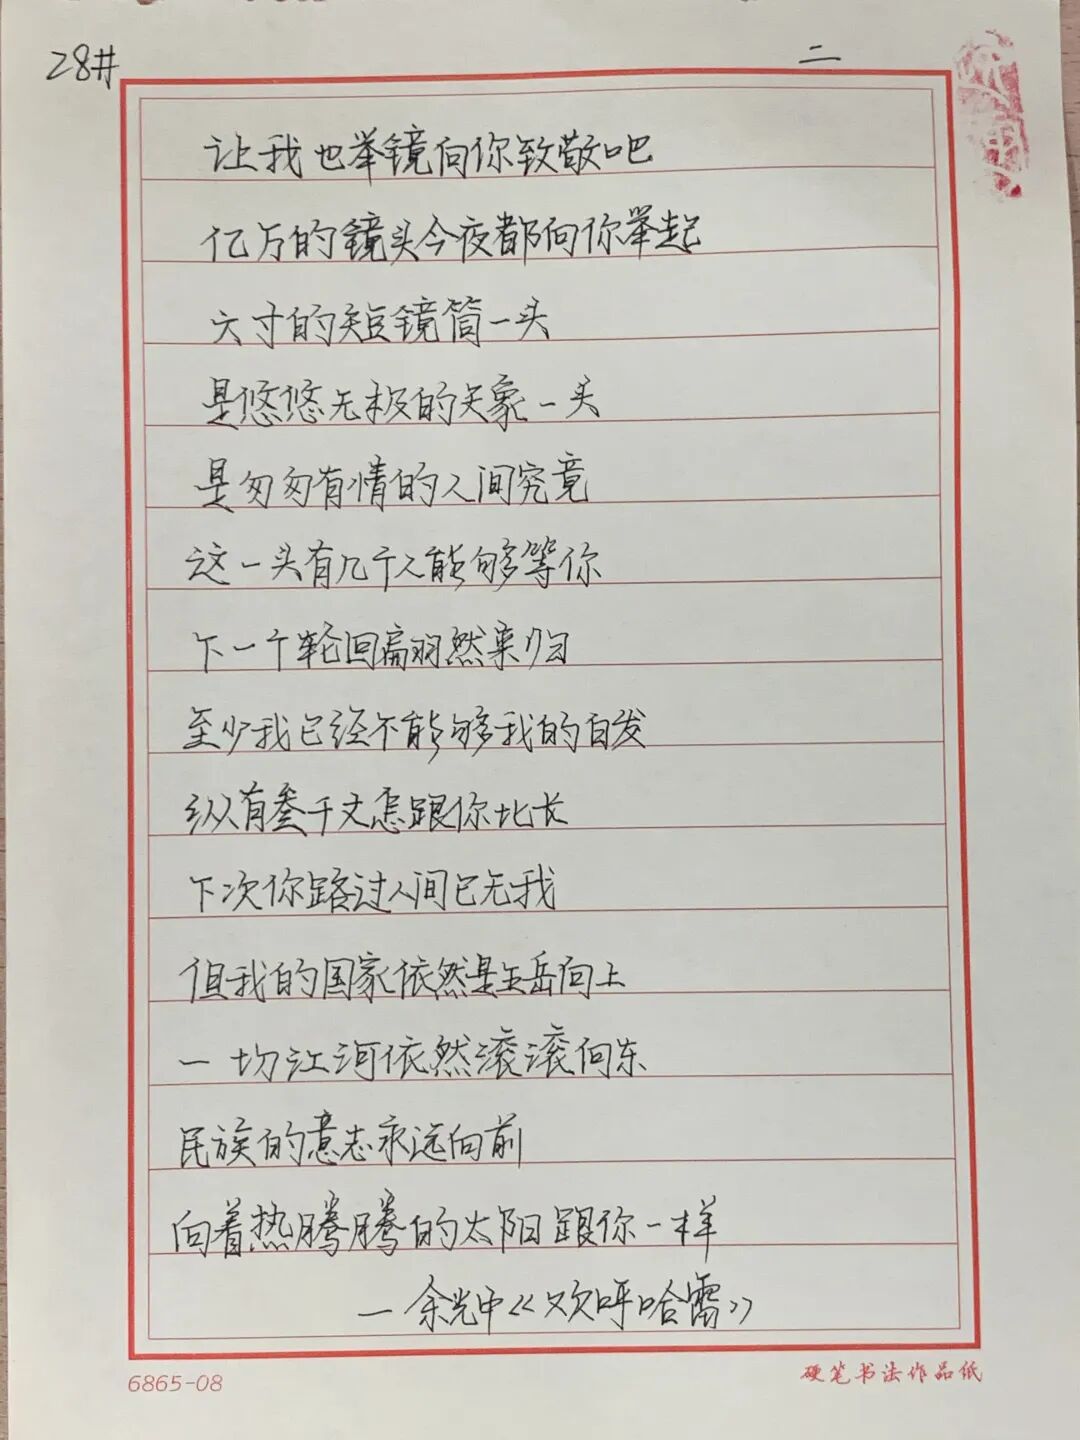 28# 二
让我也举镜向你致敬吧
亿万的镜头今夜都向你举起
六寸的短镜筒一头
是悠悠无极的天象一头
是匆匆有情的人间究竟
这一头有几个人能够等你
下一个轮回翩然来归
至少我已经不能够我的白发
纵有叁千丈怎跟你比长
下次你路过人间已无我
但我的国家依然是五岳向上
一切江河依然滚滚向东
民族的意志永远向前
向着热腾腾的太阳跟你一样
一余光中《欢呼哈雷》
6865-08 硬笔书法作品纸